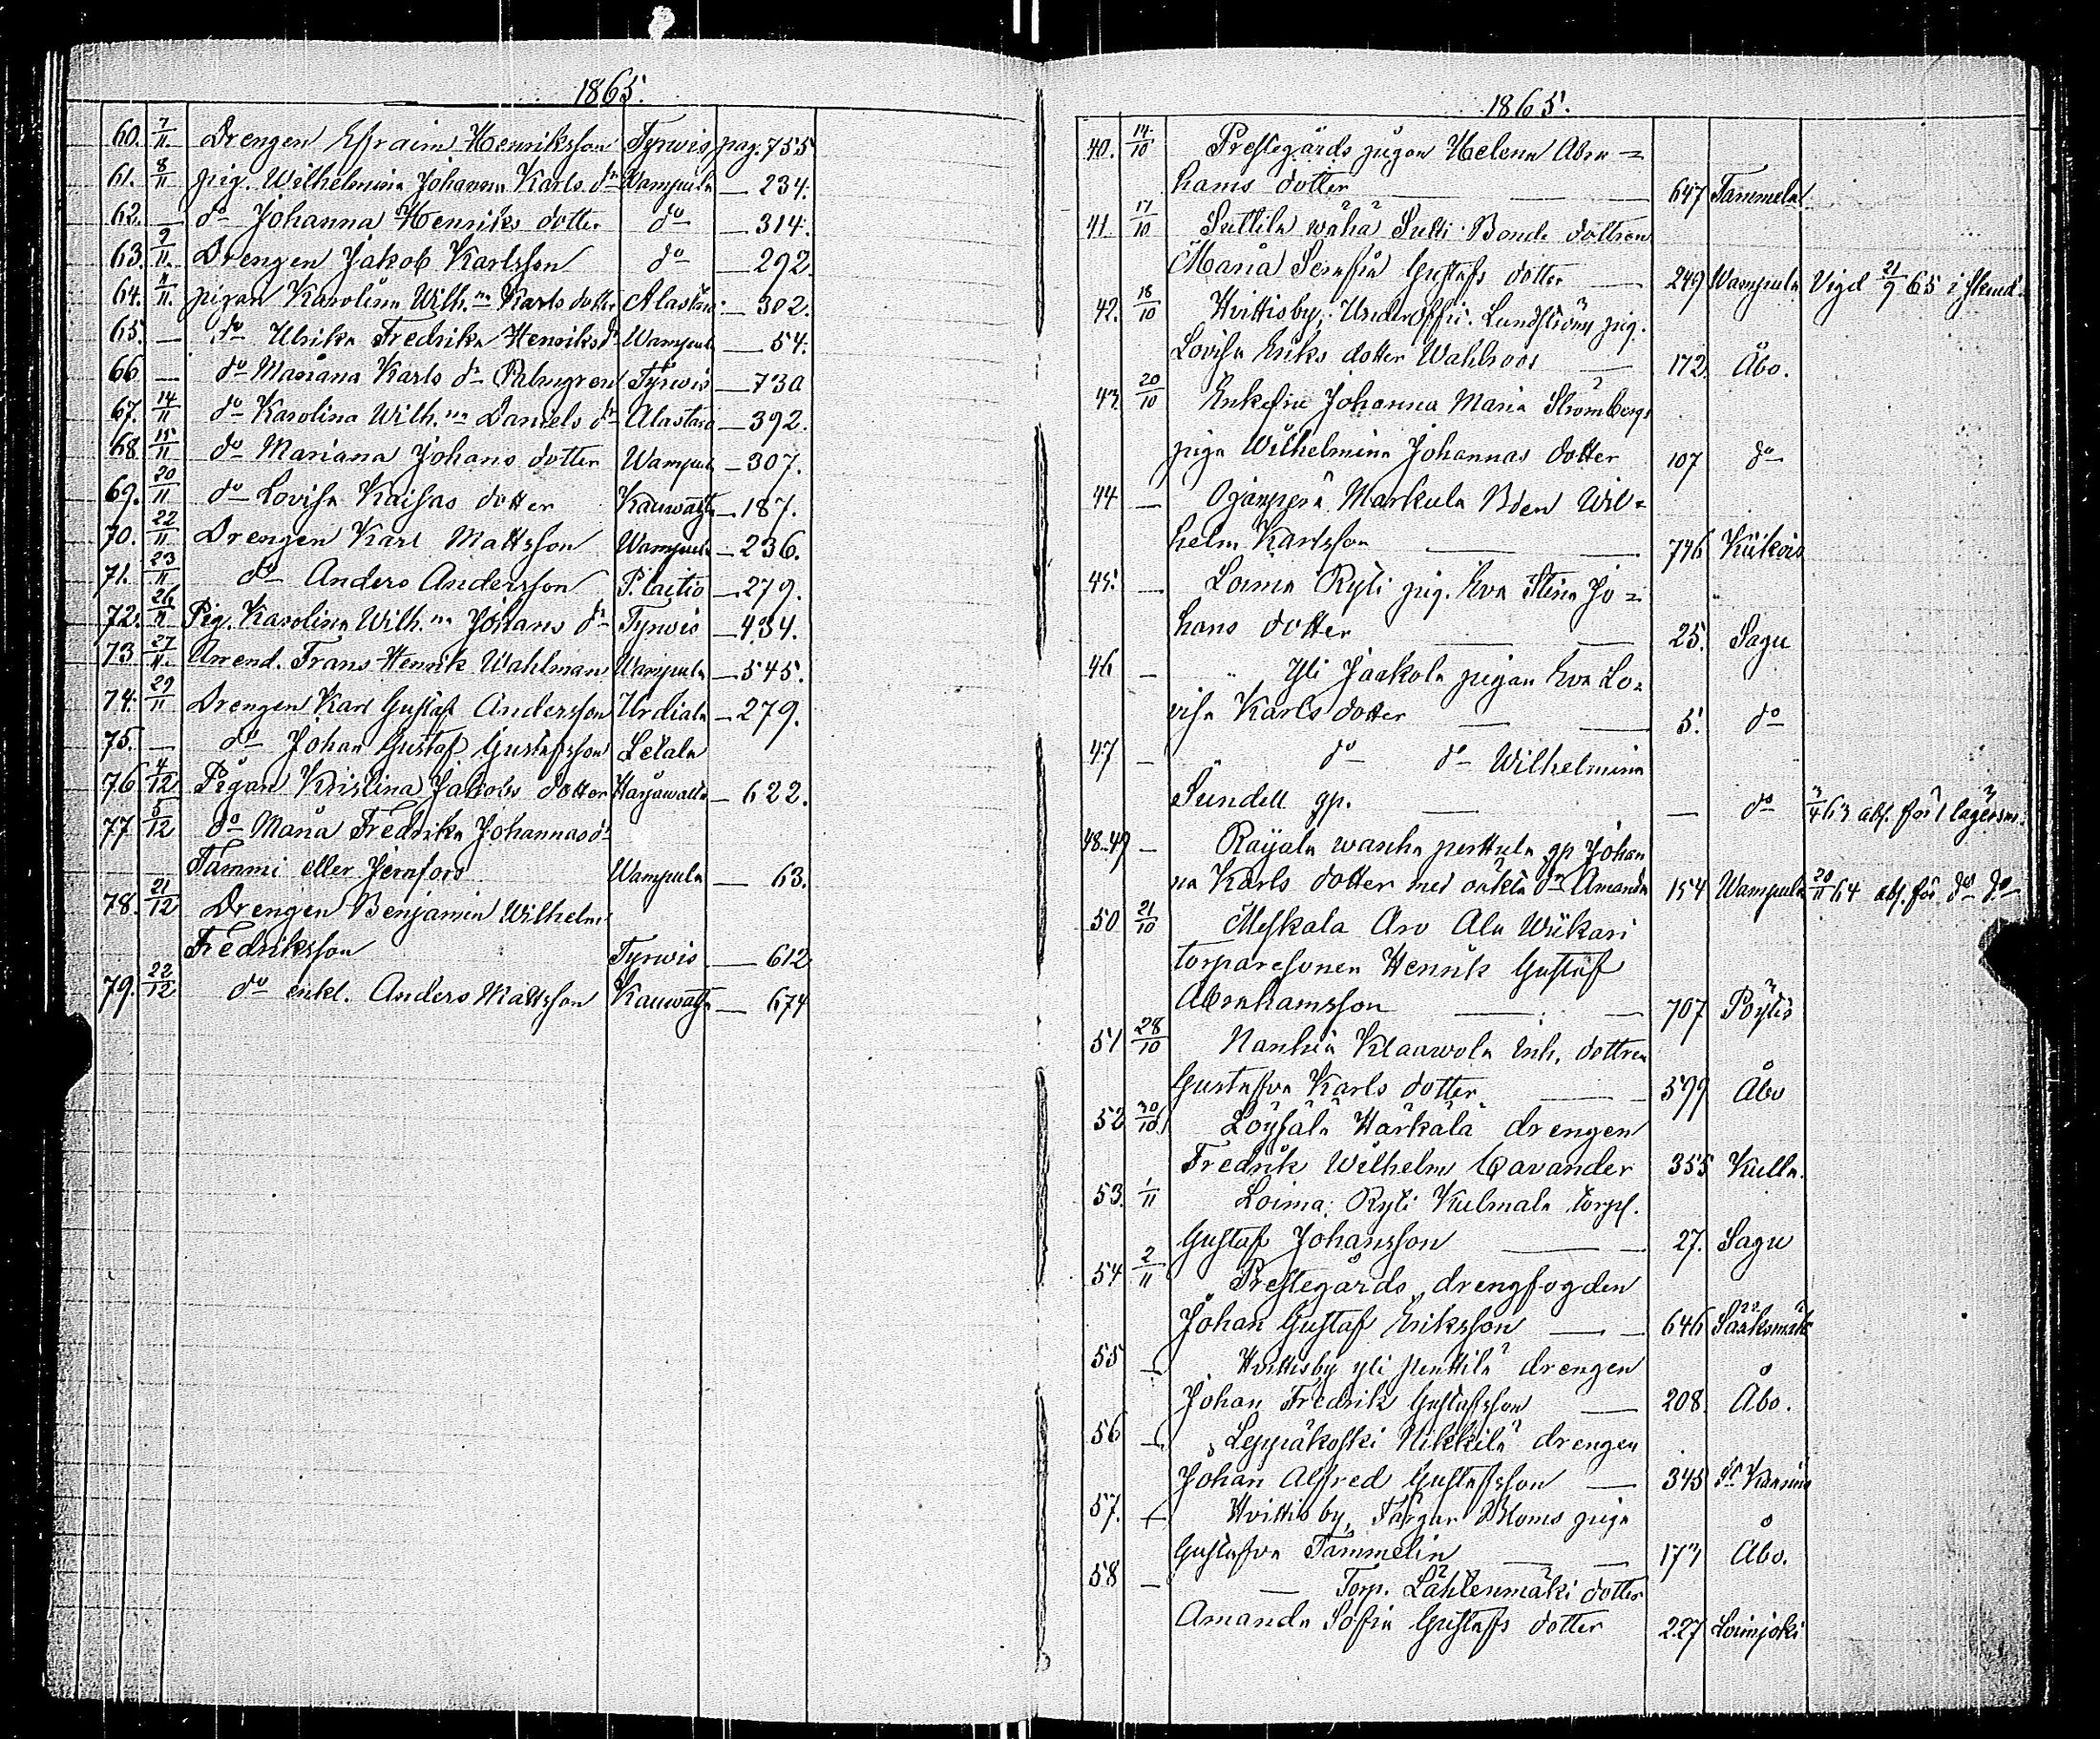 1865.
60. 7/11. Drengen Efraim Henriksson Tyrwis pag. 755
61. 8/11 pig. Wilhelmina Johanna Karls dr Wampula — 234.
62. — do Johanna Henriks dotter do — 314.
63. 9/11. Drengen Jakob Karlsson do — 292.
64. 11/11. pigan Karolina Wilh.na Karls dotter Alastaro — 302.
65. — do Ulrika Fredrika Henriks dr Wampula — 54.
66 — do Mariana Karls dr Palmgren Tyrwis — 730
67. 14/11 do Karolina Wilh.na Daniels dr Alastaro — 392.
68 15/11 do Mariana Johans dotter Wampula — 307.
69. 20/11 do Lovisa Kaisas dotter Kauwatsa — 187.
70. 22/11 Drengen Karl Mattsson Wampula — 236.
71. 23/11 do Anders Andersson P. laitio — 279.
72. 26/11 Pig. Karolina Wilh.na Johans dr Tyrwis — 434.
73 27/11. Arrend. Frans Henrik Wahlman Wampula — 545.
74. 29/11 Drengen Karl Gustaf Andersson Urdiala — 279.
75. — do Johan Gustaf Gustafsson Letala
76 4/12 Pigan Kristina Jakobs dotter Harjawalta — 622.
77 5/12 do Maria Fredrika Johannas dr
Tammi eller Jernfors Wampula — 63.
78. 21/12 Drengen Benjamin Wilhelm
Fredriksson Tyrwis — 612
79. 22/12 do enkl. Anders Mattsson Kauwatsa — 674
1865.
40. 14/10 Prestegårds pigan Helena Abra=
hams dotter — — 647 Tammela
41. 17/10 Suttila wähä Sulti Bonde dottren
Maria Serafia Gustafs dotter — 249 Wampula Vigd 21/9 65 i
42. 18/10 Hvittisby, Underoffic. Lundström pig.
Lovisa Eriks dotter Wahlroos — 172. Åbo.
43. 20/10 Enkefru Johanna Maria Strömbergs
piga Wilhelmina Johannas dotter 107 do
44 — Ojanperä Markula Bden Wil=
helm Karlsson — — 746 Kiikois
45. — Loima Ryli pig. Eva Stina Jo=
hans dotter — — 25. Sagu
46 — " Yli Jaakola pigan Eva Lo=
visa Karls dotter — — 5. do
47 — do do Wilhelmina
Sundell gp. — — do 3/4 63 abs. för 1 lägersm.
48-49 — Raijala wanha perttula gp Johan
na Karls dotter med oäkta dr Amanda 154 Wampula 20/11 64 abs. för do do
50 21/10 Meskala Aro Ala Wiikari
torparesonen Henrik Gustaf
Abrahamsson — — 707 Pöytis
51 28/10 Nanhia Klaawola Inh. dottren
Gustafva Karls dotter — 599 Åbo
52 30/10 Löysälä Härkälä drengen
Fredrik Wilhelm Cavander 355 Kulla.
53. 1/11 Loima, Ryli Kulmala torpf.
Gustaf Johansson — 27. Sagu
54 2/11 Prestegårds drengfogden
Johan Gustaf Eriksson — 646 Sääksmäki
55 — Hvittisby yli penttilä drengen
Johan Fredrik Gustafsson — 208. Åbo.
56 — Leppäkoski Nikkilä drengen
Johan Alfred Gustafsson — 345 St Karins
57. — Hvittisby, Färgar Bloms piga
Gustafva Tammelin — — 173 Åbo.
58 — — Torp. Lähteenmäki dotter
Amanda Sofia Gustafs dotter 227 Loimjoki